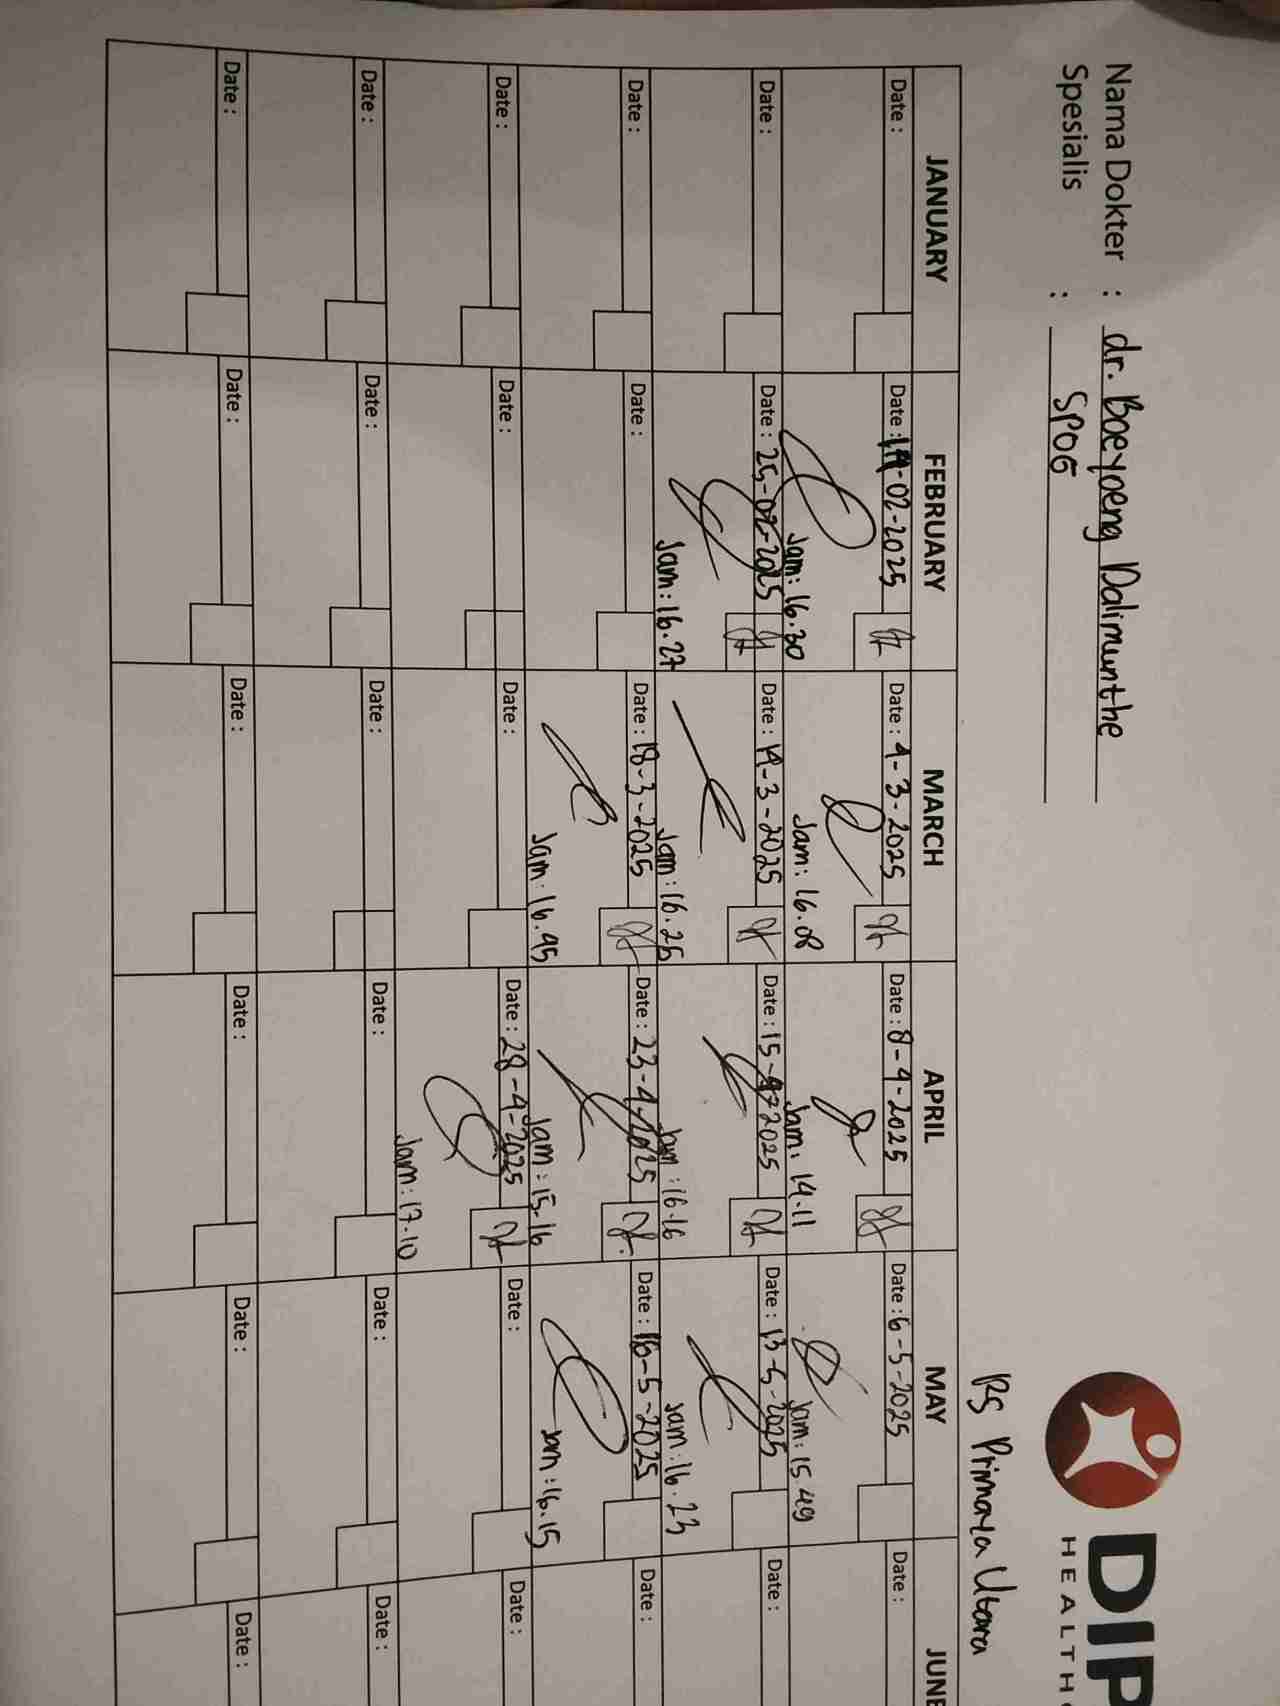 DIP
HEALTHC
Nama Dokter : dr. Boeyoeng Dalimunthe
Spesialis : SPOG
RS Primaya Utara
JANUARY FEBRUARY MARCH APRIL MAY JUNE
Date : Date : -02-2025 Date : 4-3-2025 Date : 8-4-2025 Date : 6-5-2025 Date :
Jam: 16.30 Jam: 16.08 Jam: 14.11 Jam: 15.49
Date : Date : 25-02-2025 Date : 14-3-2025 Date : 15-4-2025 Date : 13-5-2025 Date :
Jam: 16.27 Jam: 16.25 Jam: 16.16 Jam: 16.23
Date : Date : Date : 18-3-2025 Date : 23-4-2025 Date : 16-5-2025 Date :
Jam: 16.45 Jam: 15.16 Jam: 16.15
Date : Date : Date : Date : 28-4-2025 Date : Date :
Jam: 17.10
Date : Date : Date : Date : Date : Date :
Date : Date : Date : Date : Date : Date :